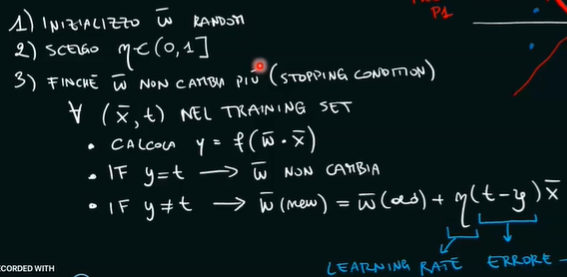 P1
1) INIZIALIZZO w̅ RANDOM
2) SCELGO η ∈ (0,1]
3) FINCHÉ w̅ NON CAMBIA PIÙ (STOPPING CONDITION)
∀ (x̅, t) NEL TRAINING SET
• CALCOLA y = f(w̅ · x̅)
• IF y=t → w̅ NON CAMBIA
• IF y≠t → w̅(new) = w̅(old) + η(t-y)x̅
LEARNING RATE ERRORE -
CORDED WITH